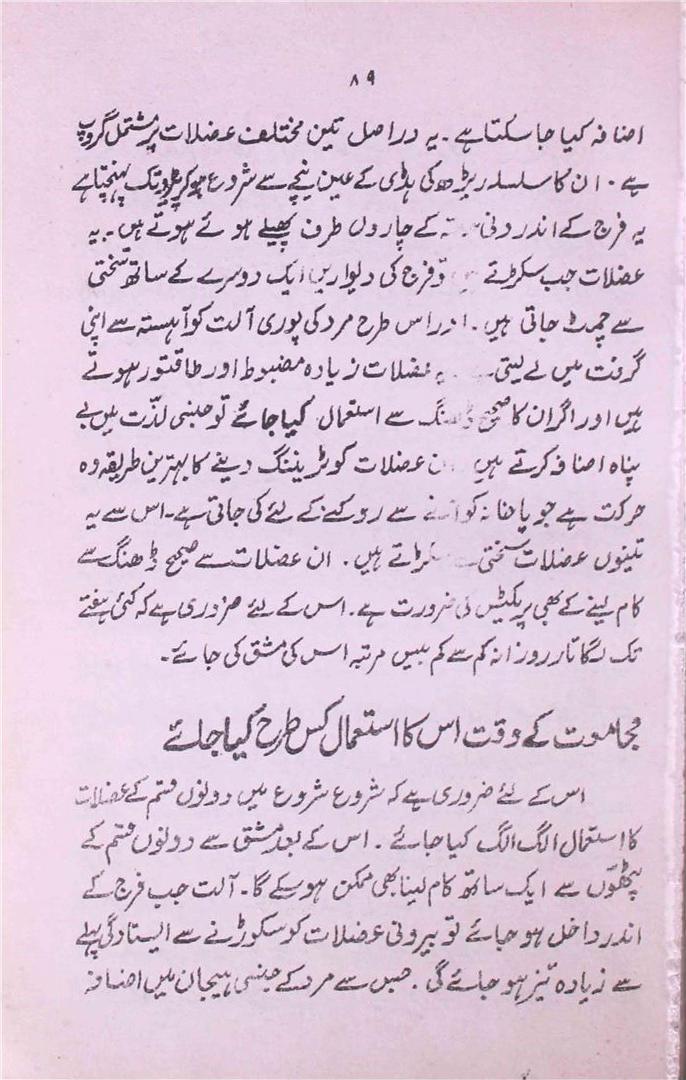 ۸۹
اضافہ کیا جا سکتا ہے۔ یہ دراصل تین مختلف عضلات پر مشتمل گروپ
ہے۔ ان کا سلسلہ ریڑھ کی ہڈی کے عین نیچے سے شروع ہو کر تک پہنچتا ہے
یہ فرج کے اندرونی کے چاروں طرف پھیلے ہوئے ہوتے ہیں۔ یہ
عضلات جب سکڑتے فرج کی دیواریں ایک دوسرے کے ساتھ سختی
سے چمٹ جاتی ہیں۔ اور اس طرح مرد کی پوری آلت کو آہستہ سے اپنی
گرفت میں لے لیتی عضلات زیادہ مضبوط اور طاقتور ہوتے
ہیں اور اگر ان کا صحیح ڈھنگ سے استعمال کیا جائے تو جنسی لذّت میں بے
پناہ اضافہ کرتے ہیں عضلات کو ٹریننگ دینے کا بہترین طریقہ وہ
حرکت ہے جو پاخانہ کو سے روکنے کے لئے کی جاتی ہے۔ اس سے یہ
تینوں عضلات سختی سکڑاتے ہیں۔ ان عضلات سے صحیح ڈھنگ سے
کام لینے کے بھی پریکٹیس کی ضرورت ہے۔ اس کے لئے ضروری ہے کہ کئی ہفتے
تک لگاتار روزانہ کم سے کم بیس مرتبہ اس کی مشق کی جائے۔
مجامعت کے وقت اس کا استعمال کس طرح کیا جائے
اس کے لئے ضروری ہے کہ شروع شروع میں دونوں قسم کے عضلات
کا استعمال الگ الگ کیا جائے۔ اس کے بعد مشق سے دونوں قسم کے
پٹھوّں سے ایک ساتھ کام لینا بھی ممکن ہو سکے گا۔ آلت جب فرج کے
اندر داخل ہو جائے تو بیرونی عضلات کو سکوڑنے سے ایستادگی پہلے
سے زیادہ تیز ہو جائے گی۔ جس سے مرد کے جنسی ہیجان میں اضافہ